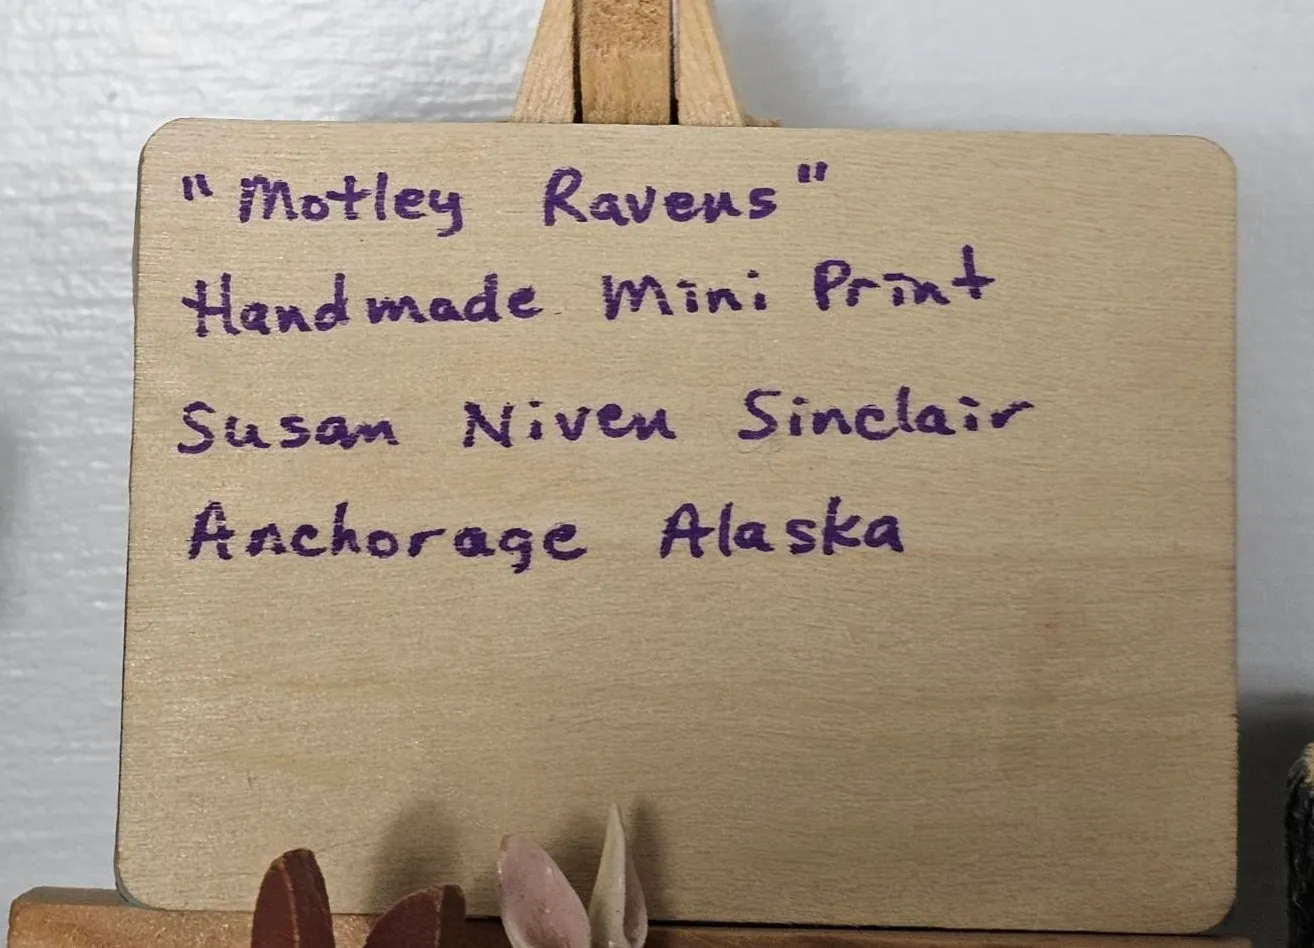 "Motley Ravens"
Handmade Mini Print
Susan Niven Sinclair
Anchorage Alaska